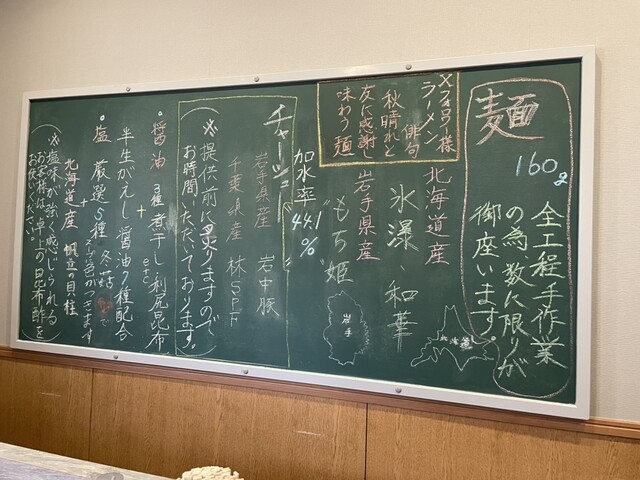 麺
160g
全工程手作業
の為、数に限りが
御座います。
Xフォロワー様
ラーメン 俳句
秋晴れと
友に感謝し
味わう麺
北海道産
氷瀑、和華
岩手県産
“もち姫”
北海道
岩手
加水率
44.1
%
チャーシュー
岩手県産 岩中豚
千葉県産 林SPF
(※提供前に炙りますので
お時間いただいております。)
。醤油 3種煮干し利尻昆布
etc
+
半生がえし醤油7種配合
。塩 厳選5種 冬菇で
スープに色がつきます
+
北海道産 帆立の貝柱
(※塩味が強く感じられる
お客様は、卓上の昆布酢を
お使いください。)